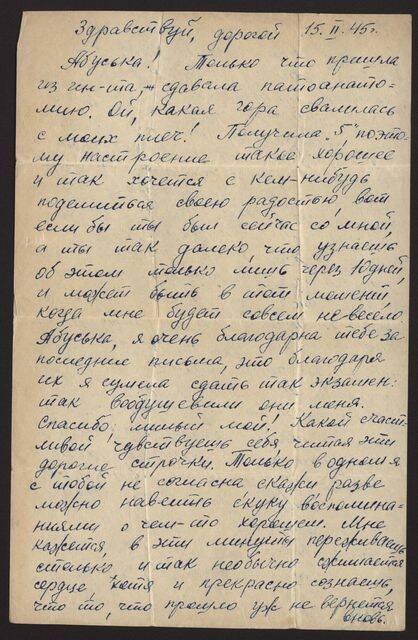 Здравствуй, дорогой 15.II.45г.
Абуська! Только что пришла
из ин-та, сдавала патоанато-
мию. Ой, какая гора свалилась
с моих плеч! Получила „5" поэто-
му настроение такое хорошее
и так хочется с кем-нибудь
поделиться своею радостью, вот
если бы ты был сейчас со мной,
а ты так далеко, что узнаешь
об этом только лишь через 10 дней,
и может быть в тот момент,
когда мне будет совсем не весело
Абуська, я очень благодарна тебе за
последние письма, это благодаря
их я сумела сдать так экзамен:
так воодушевили они меня.
Спасибо, милый мой! Какой счаст-
ливой чувствуешь себя читая эти
дорогие строчки. Только в одном я
с тобой не согласна скажи разве
можно навеять скуку воспомина-
ниями о чем-то хорошем. Мне
кажется, в эти минуты переживаешь
столько и так необычно сжимается
сердце, хотя и прекрасно сознаешь,
что то, что прошло уж не вернется
вновь.